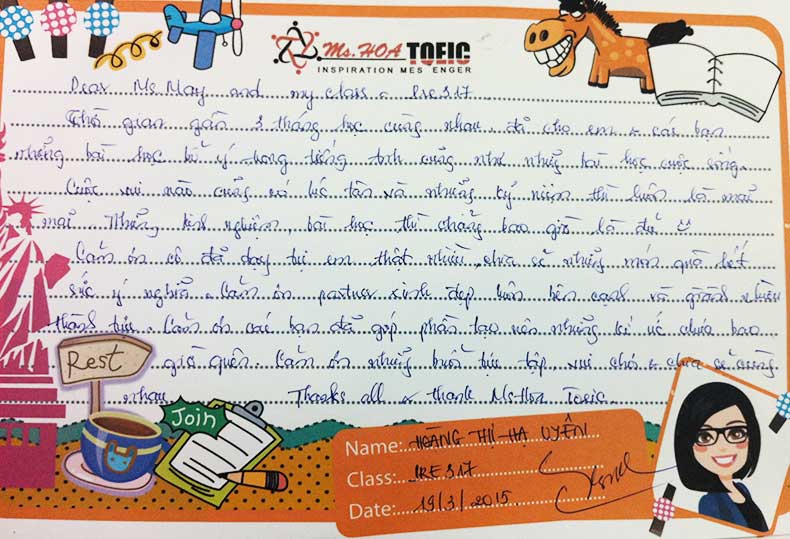 Ms. HOA TOEIC
INSPIRATION MES ENGER
Dear Ms. May and my class - PRE317
Thời gian gần 3 tháng học cùng nhau, đã cho em & các bạn
những bài học bổ ý trong tiếng Anh cũng như những bài học cuộc sống.
Cuộc vui nào cũng có lúc tàn và những kỷ niệm thì luôn là mãi
mãi. Những kinh nghiệm, bài học thì chẳng bao giờ là đủ
Cảm ơn cô đã dạy tụi em thật nhiều, chia sẻ những món quà hết
sức ý nghĩa. Cảm ơn partner xinh đẹp luôn bên cạnh và giành nhiều
thành tựu. Cảm ơn các bạn đã góp phần tạo nên những kí ức chưa bao
giờ quên. Cảm ơn những buổi tựu tập, vui chơi & chia sẻ cùng
nhau. Thanks all & thank Ms Hoa Toeic.
Rest
Join
Name: HOÀNG THỊ HẠ UYÊN
Class: PRE317
Date: 19/3/2015